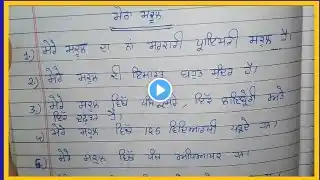 ਮੇਰਾ ਸਕੂਲ
1) ਮੇਰੇ ਸਕੂਲ ਦਾ ਨਾਂ ਸਰਕਾਰੀ ਪ੍ਰਾਇਮਰੀ ਸਕੂਲ ਹੈ।
2) ਮੇਰੇ ਸਕੂਲ ਦੀ ਇਮਾਰਤ ਬਹੁਤ ਸੁੰਦਰ ਹੈ।
3) ਮੇਰੇ ਸਕੂਲ ਵਿੱਚ ਪੰਜ ਕਮਰੇ, ਇੱਕ ਲਾਇਬ੍ਰੇਰੀ ਅਤੇ
ਇੱਕ ਦਫ਼ਤਰ ਹੈ।
4) ਮੇਰੇ ਸਕੂਲ ਵਿੱਚ 125 ਵਿਦਿਆਰਥੀ ਪੜ੍ਹਦੇ ਹਨ।
5) ਮੇਰੇ ਸਕੂਲ ਵਿੱਚ ਪੰਜ ਅਧਿਆਪਕ ਹਨ।